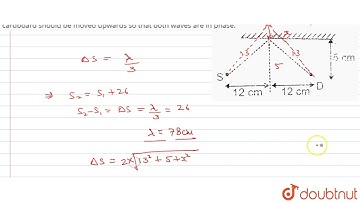 cardboard should be moved upwards so that both waves are in phase.
ΔS = λ/3
⇒ S₂ = S₁ + 26
S₂ - S₁ = ΔS = λ/3 = 26
λ = 78cm
ΔS = 2×√13² + 5 + x²
x
13
13
5
5 cm
S
D
12 cm
12 cm
doubtnut